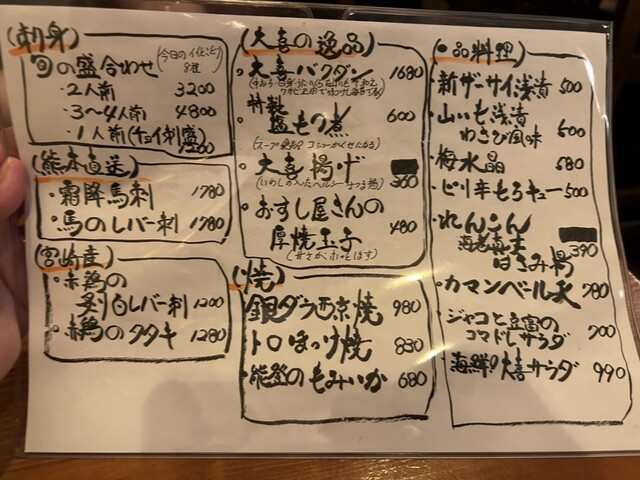 (刺身)
旬の盛合わせ
・2人前 3200
・3~4人前 4800
・1人前(チョイ刺盛)
1200
(熊本直送)
・霜降馬刺 1780
・馬のレバー刺 1780
(宮崎産)
・赤鶏の
炙り白レバー刺 1200
・赤鶏のタタキ 1280
(大喜の逸品)
・大喜バクダン 1680
特製
・塩もつ煮 600
・大喜揚げ
360
・おすし屋さんの
厚焼玉子 480
(焼)
・銀ダラ西京焼 980
・トロほっけ焼 830
・能登のもみいか 680
(一品料理)
・新ザーサイ浅漬 500
・山いも浅漬
わさび風味 500
・梅水晶 580
・ピリ辛もろキュー 500
・れんこん
海老真丈 390
はさみ揚
・カマンベール天 780
・ジャコと豆富の
コマドレサラダ 700
・海鮮!大喜サラダ 990